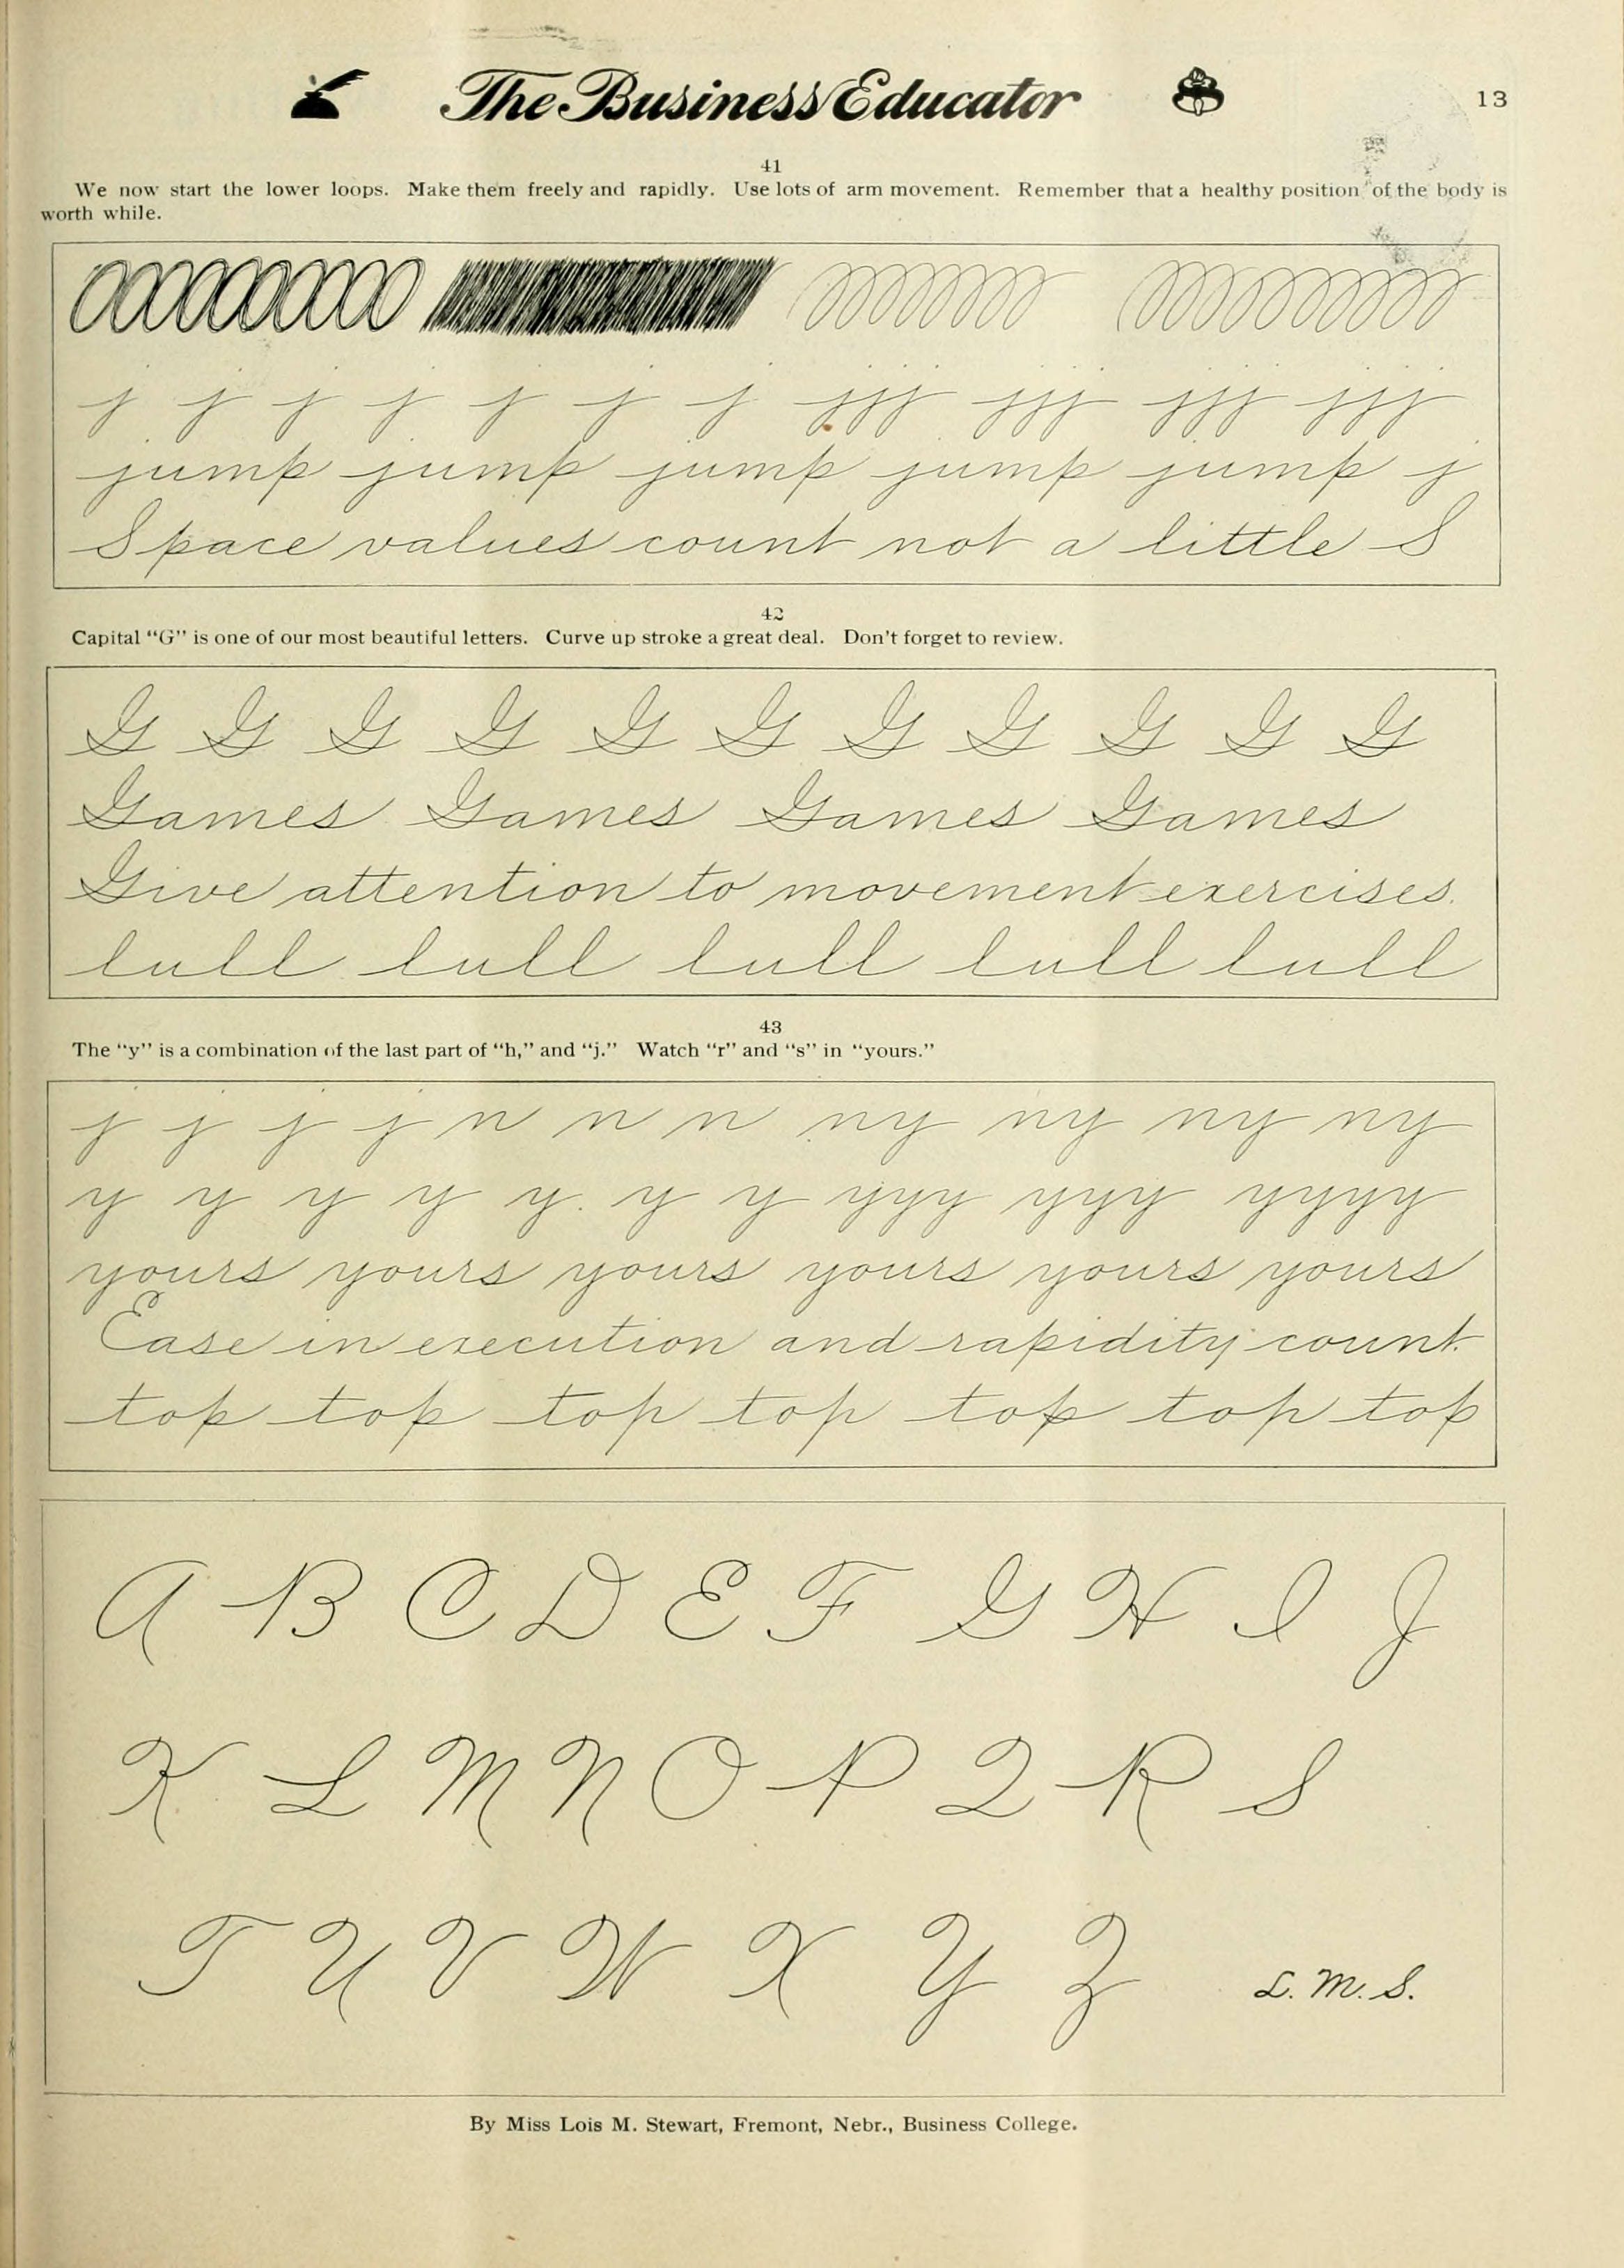 The Business Educator
13
41
We now start the lower loops. Make them freely and rapidly. Use lots of arm movement. Remember that a healthy position of the body is
worth while.
j j j j j j j jjj jjj jjj jjj
jump jump jump jump jump j
Space values count not a little S
42
Capital "G" is one of our most beautiful letters. Curve up stroke a great deal. Don't forget to review.
G G G G G G G G G G G
Games Games Games Games
Give attention to movement exercises.
lull lull lull lull lull
43
The "y" is a combination of the last part of "h," and "j." Watch "r" and "s" in "yours."
j j j j n n n ny ny ny ny
y y y y y. y y yyy yyy yyyy
yours yours yours yours yours yours
Ease in execution and rapidity count.
top top top top top top top
A B C D E F G H I J
K L M N O P Q R S
T U V W X Y Z L. M. S.
By Miss Lois M. Stewart, Fremont, Nebr., Business College.